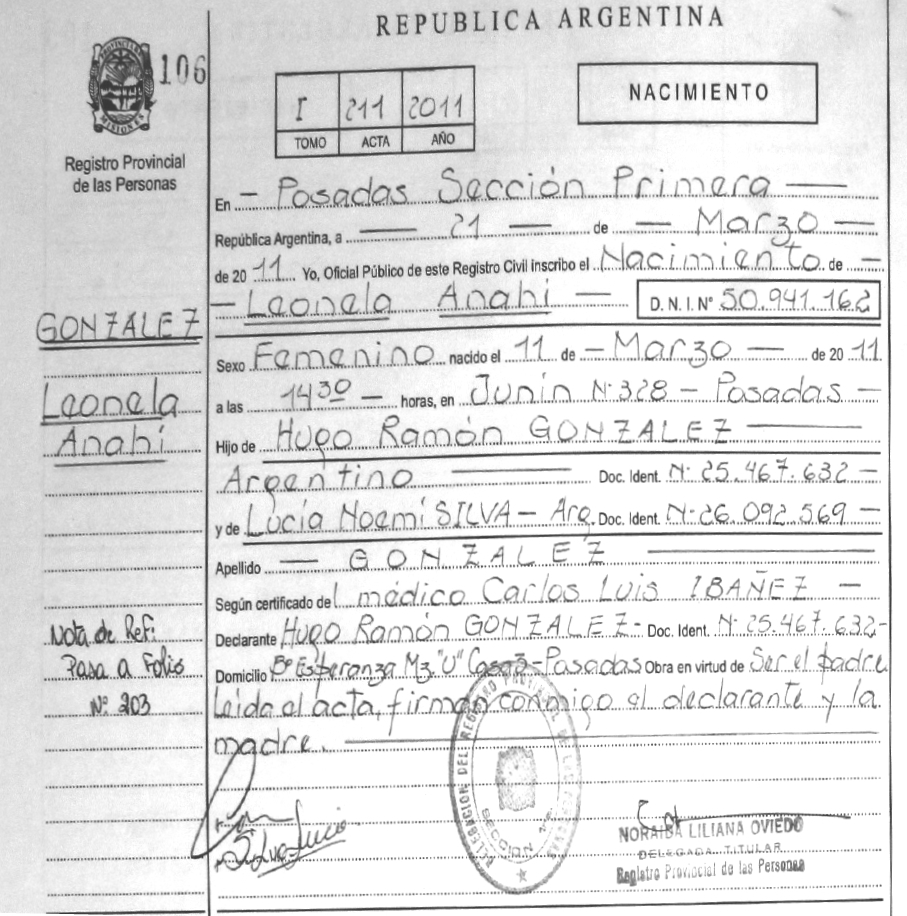 REPUBLICA ARGENTINA
PROVINCIA DE MISIONES
106
I 211 2011
TOMO ACTA AÑO
NACIMIENTO
Registro Provincial
de las Personas
En Posadas Sección Primera
República Argentina, a 21 de Marzo
de 2011 Yo, Oficial Público de este Registro Civil inscribo el Nacimiento de
Leonela Anahi D.N.I.N° 50.941.162
GONZALEZ
Leonela
Anahí
Sexo Femenino nacido el 11 de Marzo de 2011
a las 14 30 horas, en Junín N° 328 - Posadas
Hijo de Hugo Ramón GONZALEZ
Argentino Doc. Ident. N° 25.467.632
y de Lucía Noemí SILVA - Arg. Doc. Ident. N° 26.092.569
Apellido GONZALEZ
Según certificado del médico Carlos Luis IBAÑEZ
Declarante Hugo Ramón GONZALEZ - Doc. Ident. N° 25.467.632-
Domicilio B° Esperanza Mz. "U" Casa 3 - Posadas Obra en virtud de Ser el padre
Leída el acta, firman conmigo el declarante y la
madre.
Nota de Ref:
Pasa a Folio
N° 203
Silva Lucia
DELEGACION DEL REGISTRO PROVINCIAL DE LAS PERSONAS
SECCION 1ra
NORAIBA LILIANA OVIEDO
DELEGADA TITULAR
Registro Provincial de las Personas